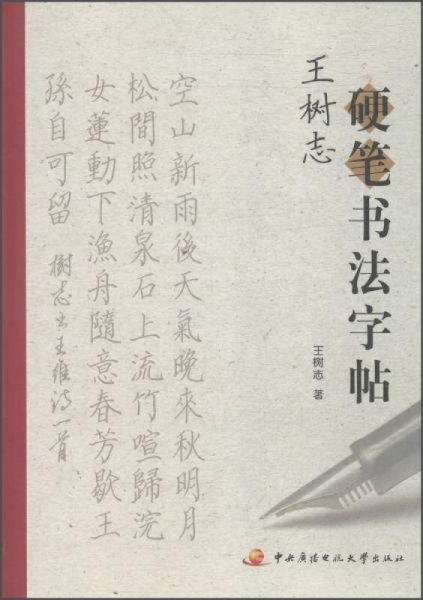 王树志
硬笔书法字帖
王树志 著
空山新雨後天氣晚來秋明月
松間照清泉石上流竹喧歸浣
女蓮動下漁舟隨意春芳歇王
孫自可留 樹志書王維詩一首
中央广播电视大学出版社